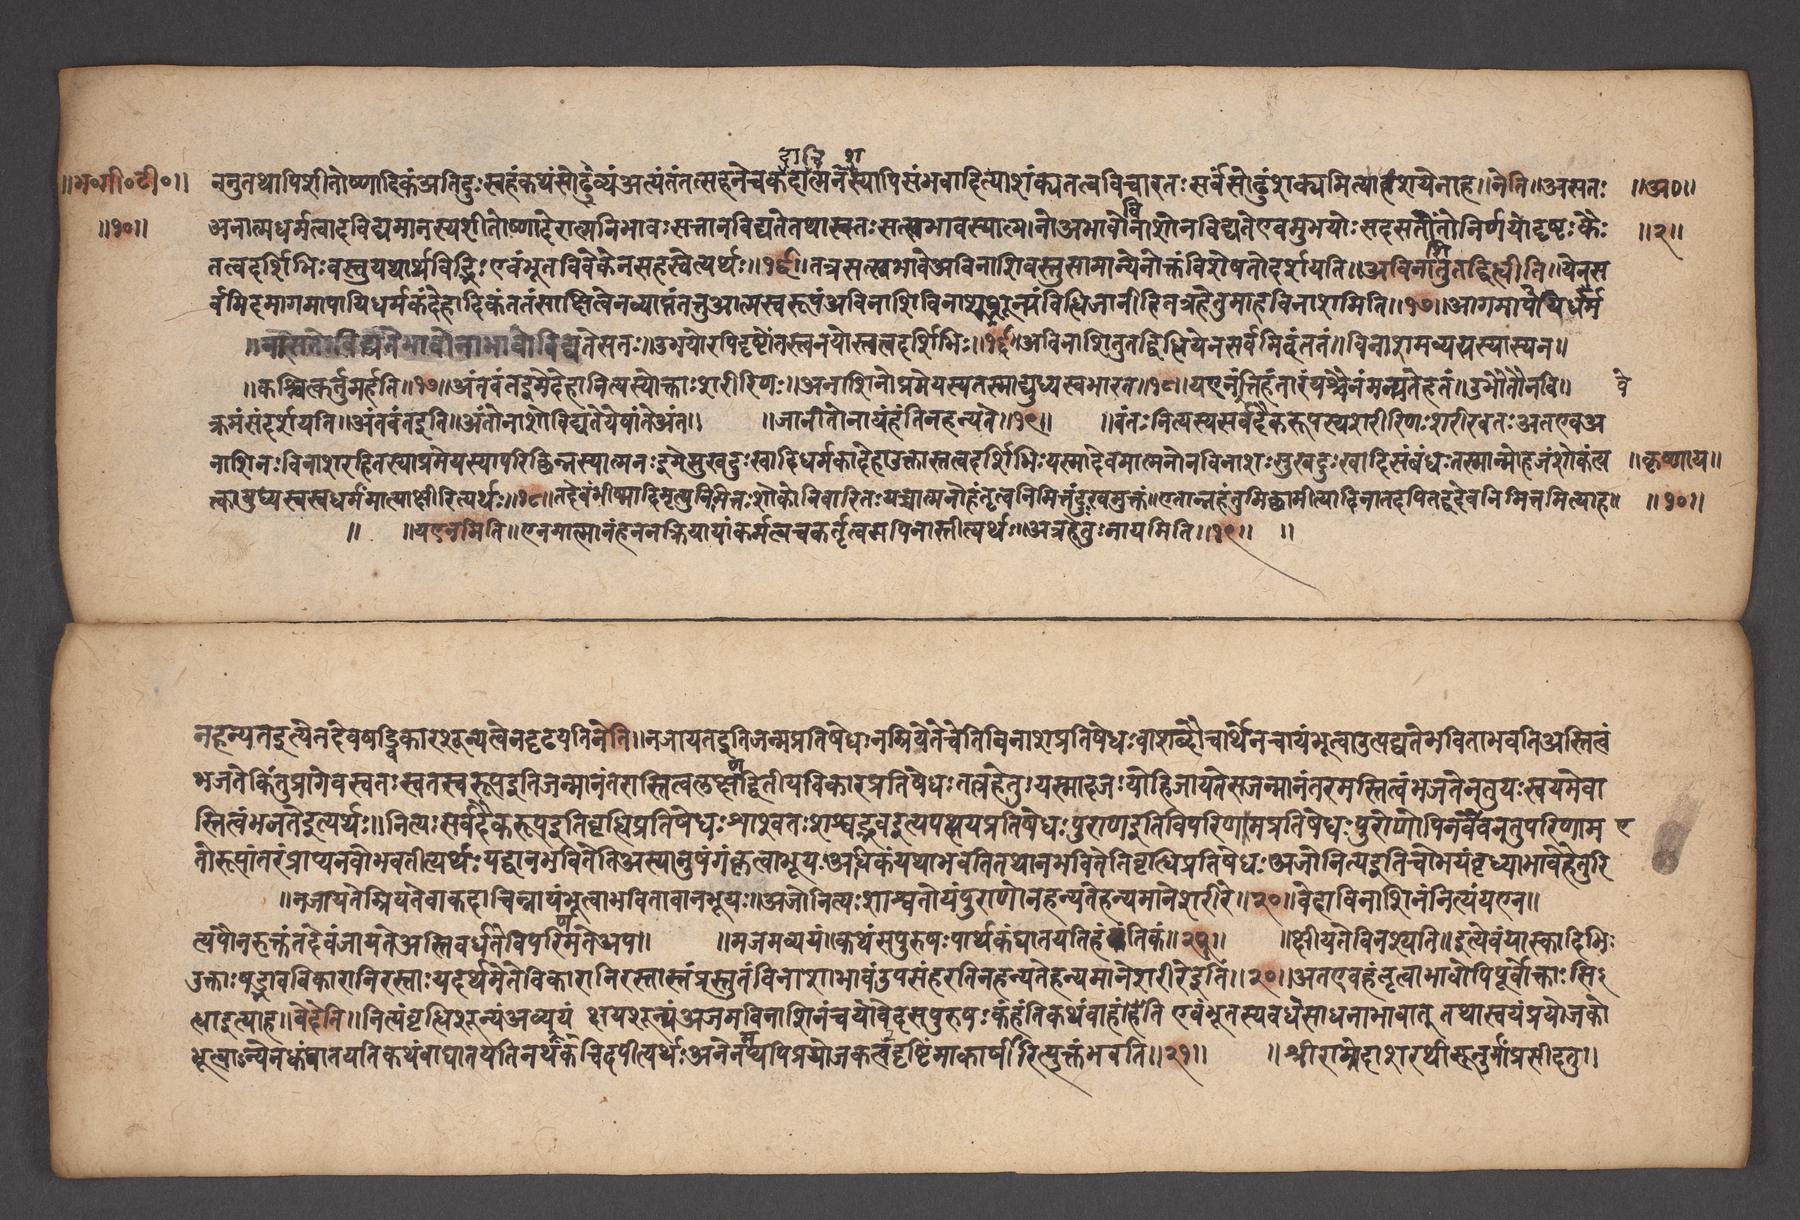 ॥भ॰गी॰टी॰॥
॥१०॥
॥अ०॥
॥२॥
ननुतथापिशीतोष्णादिकंअतिदुःसहंकथंसोढव्यंअत्यंतंतत्सहनेचकदाचिदात्मनाशस्यापिसंभवादित्याशंक्यतत्वविचारतःसर्वंसोढुंशक्यमित्याशयेनाह॥नेति॥असतः
अनात्मधर्मत्वादविद्यमानस्यशीतोष्णादेरात्मनिभावःसत्तानविद्यतेतथास्वतःसत्स्वभावस्यात्मनोअभावोविनाशोनविद्यतेएवमुभयोःसदसतोंतोनिर्णयोदृष्टःकैः
तत्वदर्शिभिःवस्तुयथार्थविद्भिःएवंभूतविवेकेनसहस्वेत्यर्थः॥१६॥तत्रसत्स्वभावंअविनाशिवस्तुसामान्येनोक्तंविशेषतोदर्शयति॥अविनाशितुतद्विद्धीति॥येनस
र्वमिदमागमापायिधर्मकंदेहादिकंततंसाक्षित्वेनव्याप्तंतत्तुआत्मस्वरूपंअविनाशिविनाशशून्यंविद्धिजानीहितत्रहेतुमाहविनाशमिति॥१७॥आगमापायिधर्म
॥नासतोविद्यतेभावोनाभावोविद्यतेसतः॥उभयोरपिदृष्टोंतस्त्वनयोस्तत्वदर्शिभिः॥१६॥अविनाशितुतद्विद्धियेनसर्वमिदंततं॥विनाशमव्ययस्यास्यन॥
॥कश्चित्कर्तुमर्हति॥१७॥अंतवंतइमेदेहानित्यस्योक्ताःशरीरिणः॥अनाशिनोप्रमेयस्यतस्माद्युध्यस्वभारत॥१८॥यएनंवेत्तिहंतारंयश्चैनंमन्यतेहतं॥उभौतौनवि॥
क्रमंसंदर्शयति॥अंतवंतइति॥अंतोनाशोविद्यतेयेषांतेअंत॥ ॥जानीतोनायंहंतिनहन्यते॥१९॥ ॥वंतःनित्यस्यसर्वदैकरूपस्यशरीरिणःशरीरवतःअतएवअ
नाशिनःविनाशरहितस्याप्रमेयस्यापरिच्छिन्नस्यात्मनःइमेसुखदुःखादिधर्मकादेहाउक्तास्तत्वदर्शिभिःयस्मादेवमात्मनोनविनाशःसुखदुःखादिसंबंधःतस्मान्मोहजंशोकंत्य
॥कृष्णाय॥
क्त्वायुध्यस्वस्वधर्मंमात्याक्षीरित्यर्थः॥१८॥तदेवंभीष्मादिमृत्युनिमित्तःशोकोनिवारितःयच्चात्मनोहंतृत्वनिमित्तंदुःखमुक्तं॥एतान्नहंतुमिच्छामीत्यादिनातदपितद्वदेवनिर्निमित्तमित्याह॥
॥१०॥
॥ ॥यएनमिति॥एनमात्मानंहननक्रियायांकर्मत्ववचकर्तृत्वमपिनास्तीत्यर्थः॥अत्रहेतुःनायमिति॥१९॥ ॥
नहन्यतइत्येतदेवषड्विकारशून्यत्वेनदृढयतिनेति॥नजायतइतिजन्मप्रतिषेधःनम्रियतेचेतिविनाशप्रतिषेधःवाशब्दौचार्थेनचायंभूत्वाउत्पद्यतेभविताभवतिअस्तित्वं
भजतेकिंतुप्रागेवस्वतःस्वतस्वरूपइतिजन्मानंतरास्तित्वलक्षणद्वितीयविकारप्रतिषेधःतत्रहेतुःयस्मादजःयोहिजायतेसजन्मानंतरमस्तित्वंभजतेनतुयःस्वयमेवा
स्तित्वंभजतेइत्यर्थः॥नित्यःसर्वदैकरूपइतिवृद्धिप्रतिषेधःशाश्वतःशश्वद्भवइत्यपक्षयप्रतिषेधःपुराणइतिविपरिणामप्रतिषेधःपुराणोपिनवैवनतुपरिणाम
तोरूपांतरंप्राप्यनवोभवतीत्यर्थःयद्वानभवितेतिअस्यानुषंगंकृत्वाभूयःअधिकंयथाभवतितथानभवितेतिवृद्धिप्रतिषेधःअजोनित्यइतिचोभयंवृध्याभावेहेतुरि
॥नजायतेम्रियतेवाकदाचिन्नायंभूत्वाभवितावानभूयः॥अजोनित्यःशाश्वतोयंपुराणोनहन्यतेहन्यमानेशरीरे॥२०॥वेदाविनाशिनंनित्यंयएन॥
त्यंपौनरुक्तंतदेवंजायतेअस्तिवर्धतेविपरिणमतेअप॥ ॥मजमव्ययं॥कथंसपुरुषःपार्थकंघातयतिहंतिकं॥२१॥ ॥क्षीयतेविनश्यति॥इत्येवंयास्कादिभिः
उक्ताःषड्भावविकारानिरस्ताःयदर्थमेतेविकारानिरस्तास्तंप्रस्तुतंविनाशाभावंउपसंहरतिनहन्यतेहन्यमानेशरीरेइति॥२०॥अतएवहंतृत्वाभावोपिपूर्वोक्ताःसि
त्धाइत्याह॥वेदेति॥नित्यंवृद्धिशून्यंअव्ययंक्षयशून्यंअजमविनाशिनंचयोवेदसपुरुषःकंहंतिकथंवाहंतिएवंभूतस्यवधेसाधनाभावात्तथास्वयंप्रयोजको
भूत्वाऽन्येनकंघातयतिकथंवाघातयतिनकंचिदपीत्यर्थःअनेनमय्यपिप्रयोजकत्वदृष्टिंमाकार्षीरित्युक्तंभवति॥२१॥ ॥श्रीरामदाशरथीसूनुर्मांप्रसीदतु॥